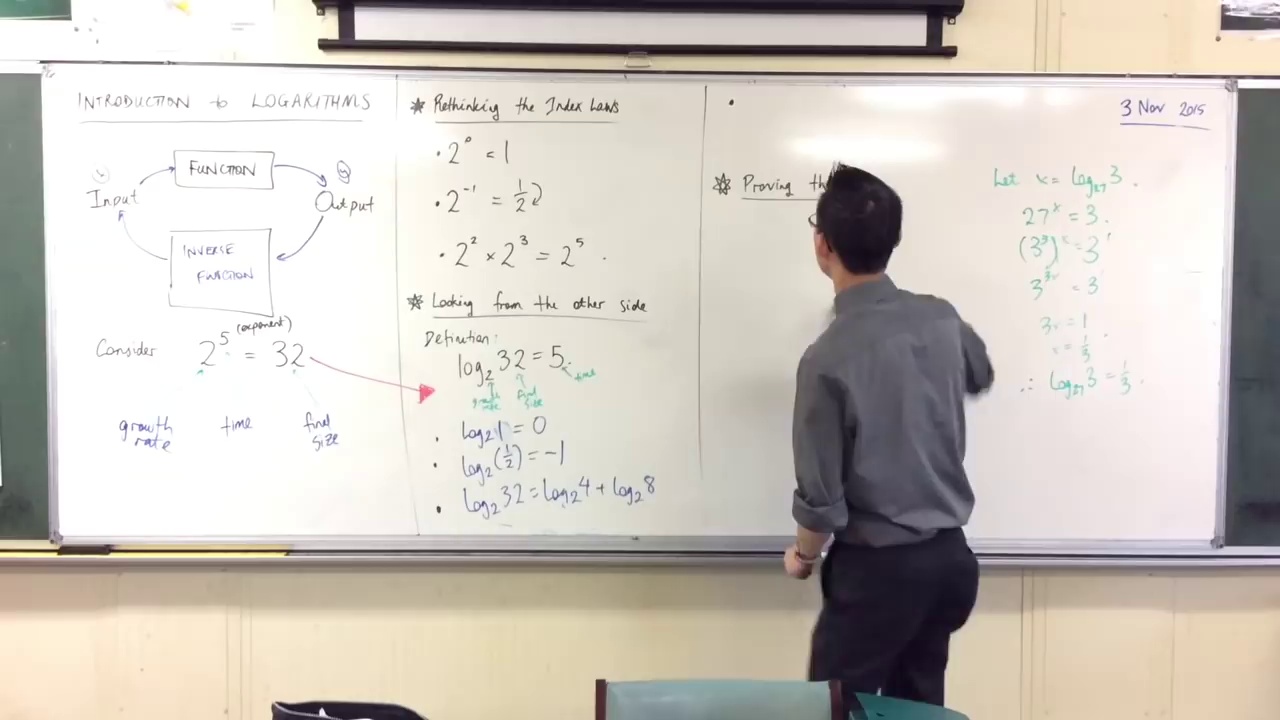 INTRODUCTION to LOGARITHMS
FUNCTION
Input
Output
INVERSE
FUNCTION
Consider 2⁵ = 32
(exponent)
growth rate
time
final size
* Rethinking the Index Laws
• 2⁰ = 1
• 2⁻¹ = 1/2
• 2² × 2³ = 2⁵.
* Looking from the other side
Definition:
log₂ 32 = 5.
growth rate
final size
time
• log₂ 1 = 0
• log₂ (1/2) = -1
• log₂ 32 = log₂ 4 + log₂ 8
* Proving th
3 Nov 2015
Let x = log₂₇ 3.
27ˣ = 3.
(3³)ˣ = 3¹
3³ˣ = 3¹
3x = 1
x = 1/3.
∴ log₂₇ 3 = 1/3.